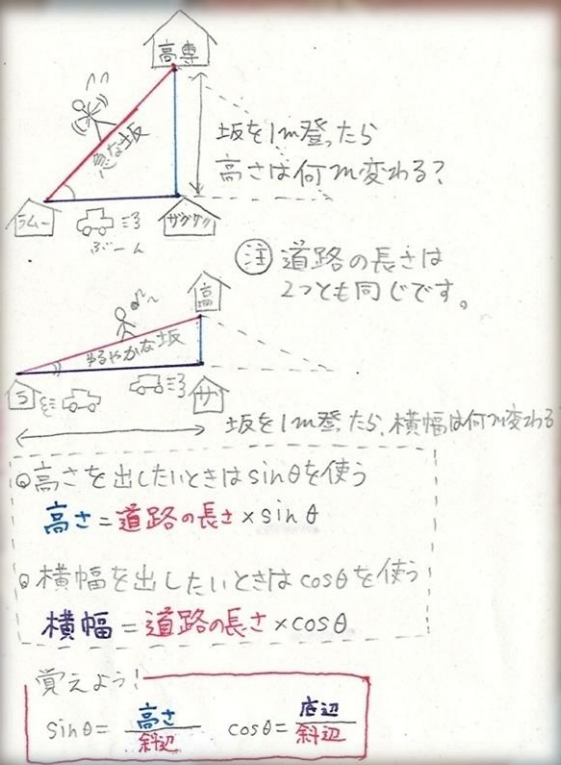 高専
急な坂
坂を1m登ったら
高さは何m変わる?
ラムー
ザグザグ
ぶーん
注 道路の長さは
2つとも同じです。
高
ゆるやかな坂
ラ
サ
坂を1m登ったら、横幅は何m変わる
高さを出したいときはsinθを使う
高さ=道路の長さ×sinθ
横幅を出したいときはcosθを使う
横幅=道路の長さ×cosθ
覚えよう!
sinθ= 高さ/斜辺 cosθ= 底辺/斜辺